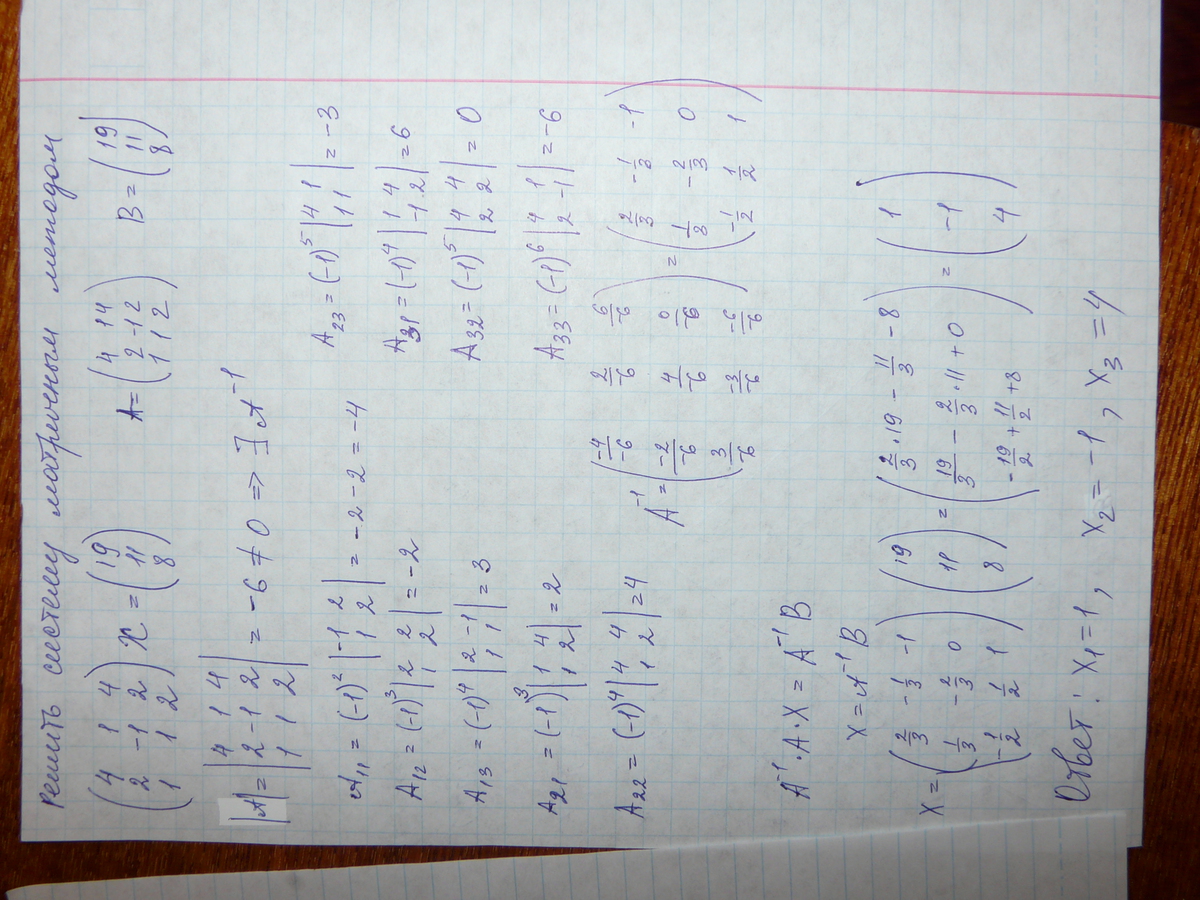 Решить систему матричным методом
(4 1 4; 2 -1 2; 1 1 2) x = (19; 11; 8) A = (4 1 4; 2 -1 2; 1 1 2) B = (19; 11; 8)
|A| = |4 1 4; 2 -1 2; 1 1 2| = -6 ≠ 0 => ∃ A⁻¹
A₁₁ = (-1)² |-1 2; 1 2| = -2 - 2 = -4
A₁₂ = (-1)³ |2 2; 1 2| = -2
A₁₃ = (-1)⁴ |2 -1; 1 1| = 3
A₂₁ = (-1)³ |1 4; 1 2| = 2
A₂₂ = (-1)⁴ |4 4; 1 2| = 4
A₂₃ = (-1)⁵ |4 1; 1 1| = -3
A₃₁ = (-1)⁴ |1 4; -1 2| = 6
A₃₂ = (-1)⁵ |4 4; 2 2| = 0
A₃₃ = (-1)⁶ |4 1; 2 -1| = -6
A⁻¹ = (-4/-6 2/-6 6/-6; -2/-6 4/-6 0/-6; 3/-6 -3/-6 -6/-6) = (2/3 -1/3 -1; 1/3 -2/3 0; -1/2 1/2 1)
A⁻¹ · A · X = A⁻¹ B
X = A⁻¹ B
X = (2/3 -1/3 -1; 1/3 -2/3 0; -1/2 1/2 1) (19; 11; 8) = (2/3 · 19 - 11/3 - 8; 19/3 - 2/3 · 11 + 0; -19/2 + 11/2 + 8) = (1; -1; 4)
Ответ: x₁ = 1, x₂ = -1, x₃ = 4